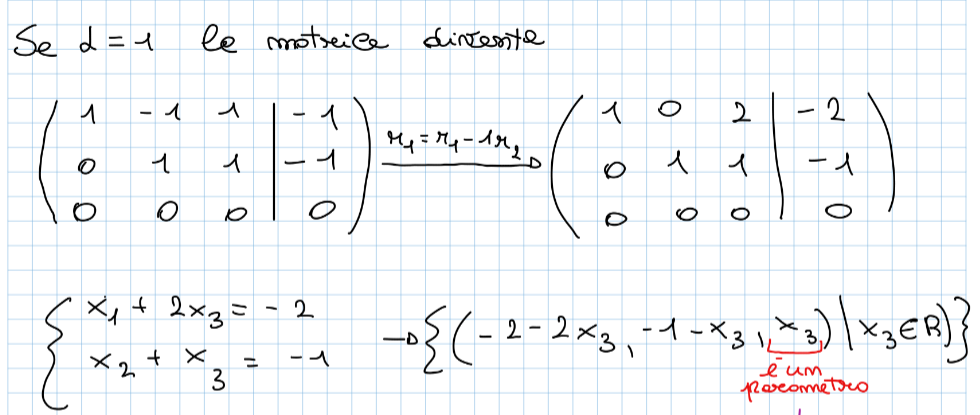 Se d = 1 la matrice diventa
( 1 -1 1 | -1 ) r₁ = r₁ - 1r₂ ( 1 0 2 | -2 )
( 0 1 1 | -1 ) → ( 0 1 1 | -1 )
( 0 0 0 | 0 ) ( 0 0 0 | 0 )
{ x₁ + 2x₃ = -2
{ x₂ + x₃ = -1 → {(-2-2x₃, -1-x₃, x₃) | x₃ ∈ R)}
è un
parametro